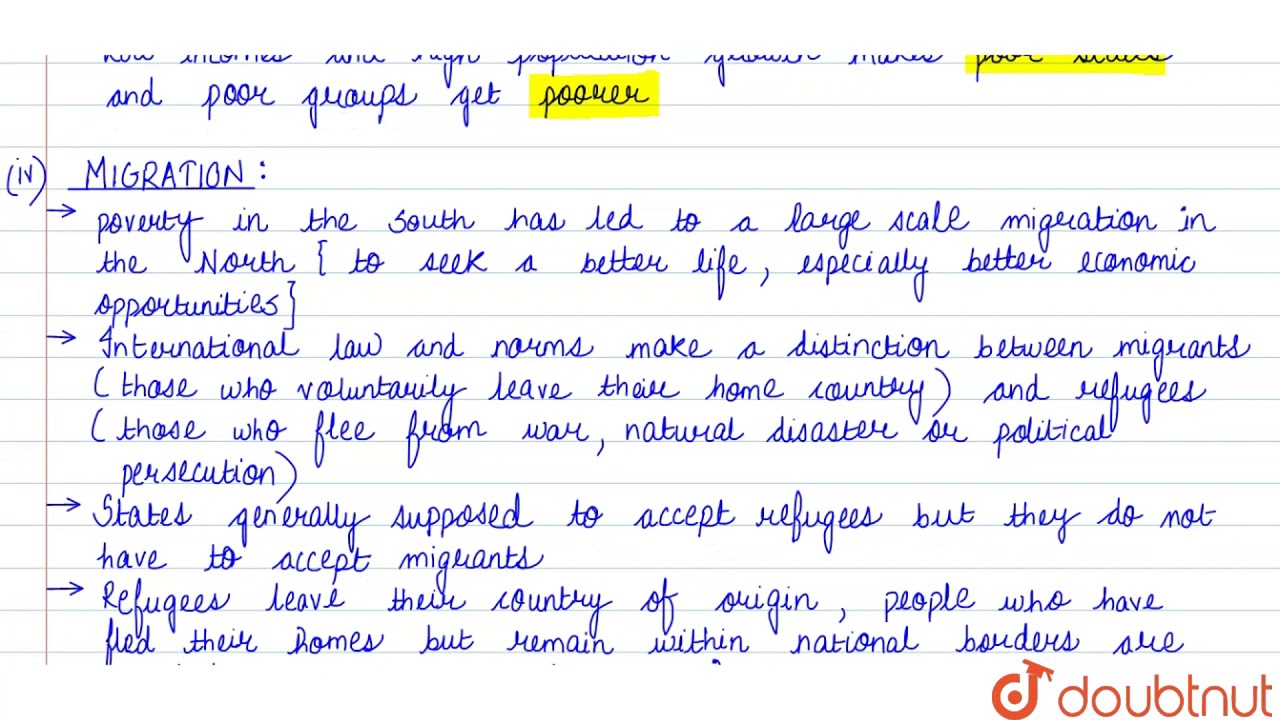 low incomes and high population growth makes poor states
and poor groups get poorer
(iv) MIGRATION :
→ poverty in the south has led to a large scale migration in
the North [ to seek a better life, especially better economic
opportunities]
→ International law and norms make a distinction between migrants
( those who voluntarily leave their home country) and refugees
( those who flee from war, natural disaster or political
persecution)
→ States generally supposed to accept refugees but they do not
have to accept migrants
→ Refugees leave their country of origin, people who have
fled their homes but remain within national borders are
doubtnut